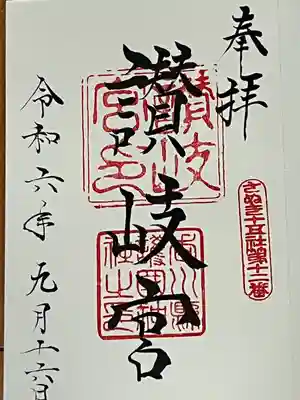 奉拝
さぬき十五社第十二番
讃岐宮
讃岐宮印
香川縣護國神社之印
令和六年九月十六日